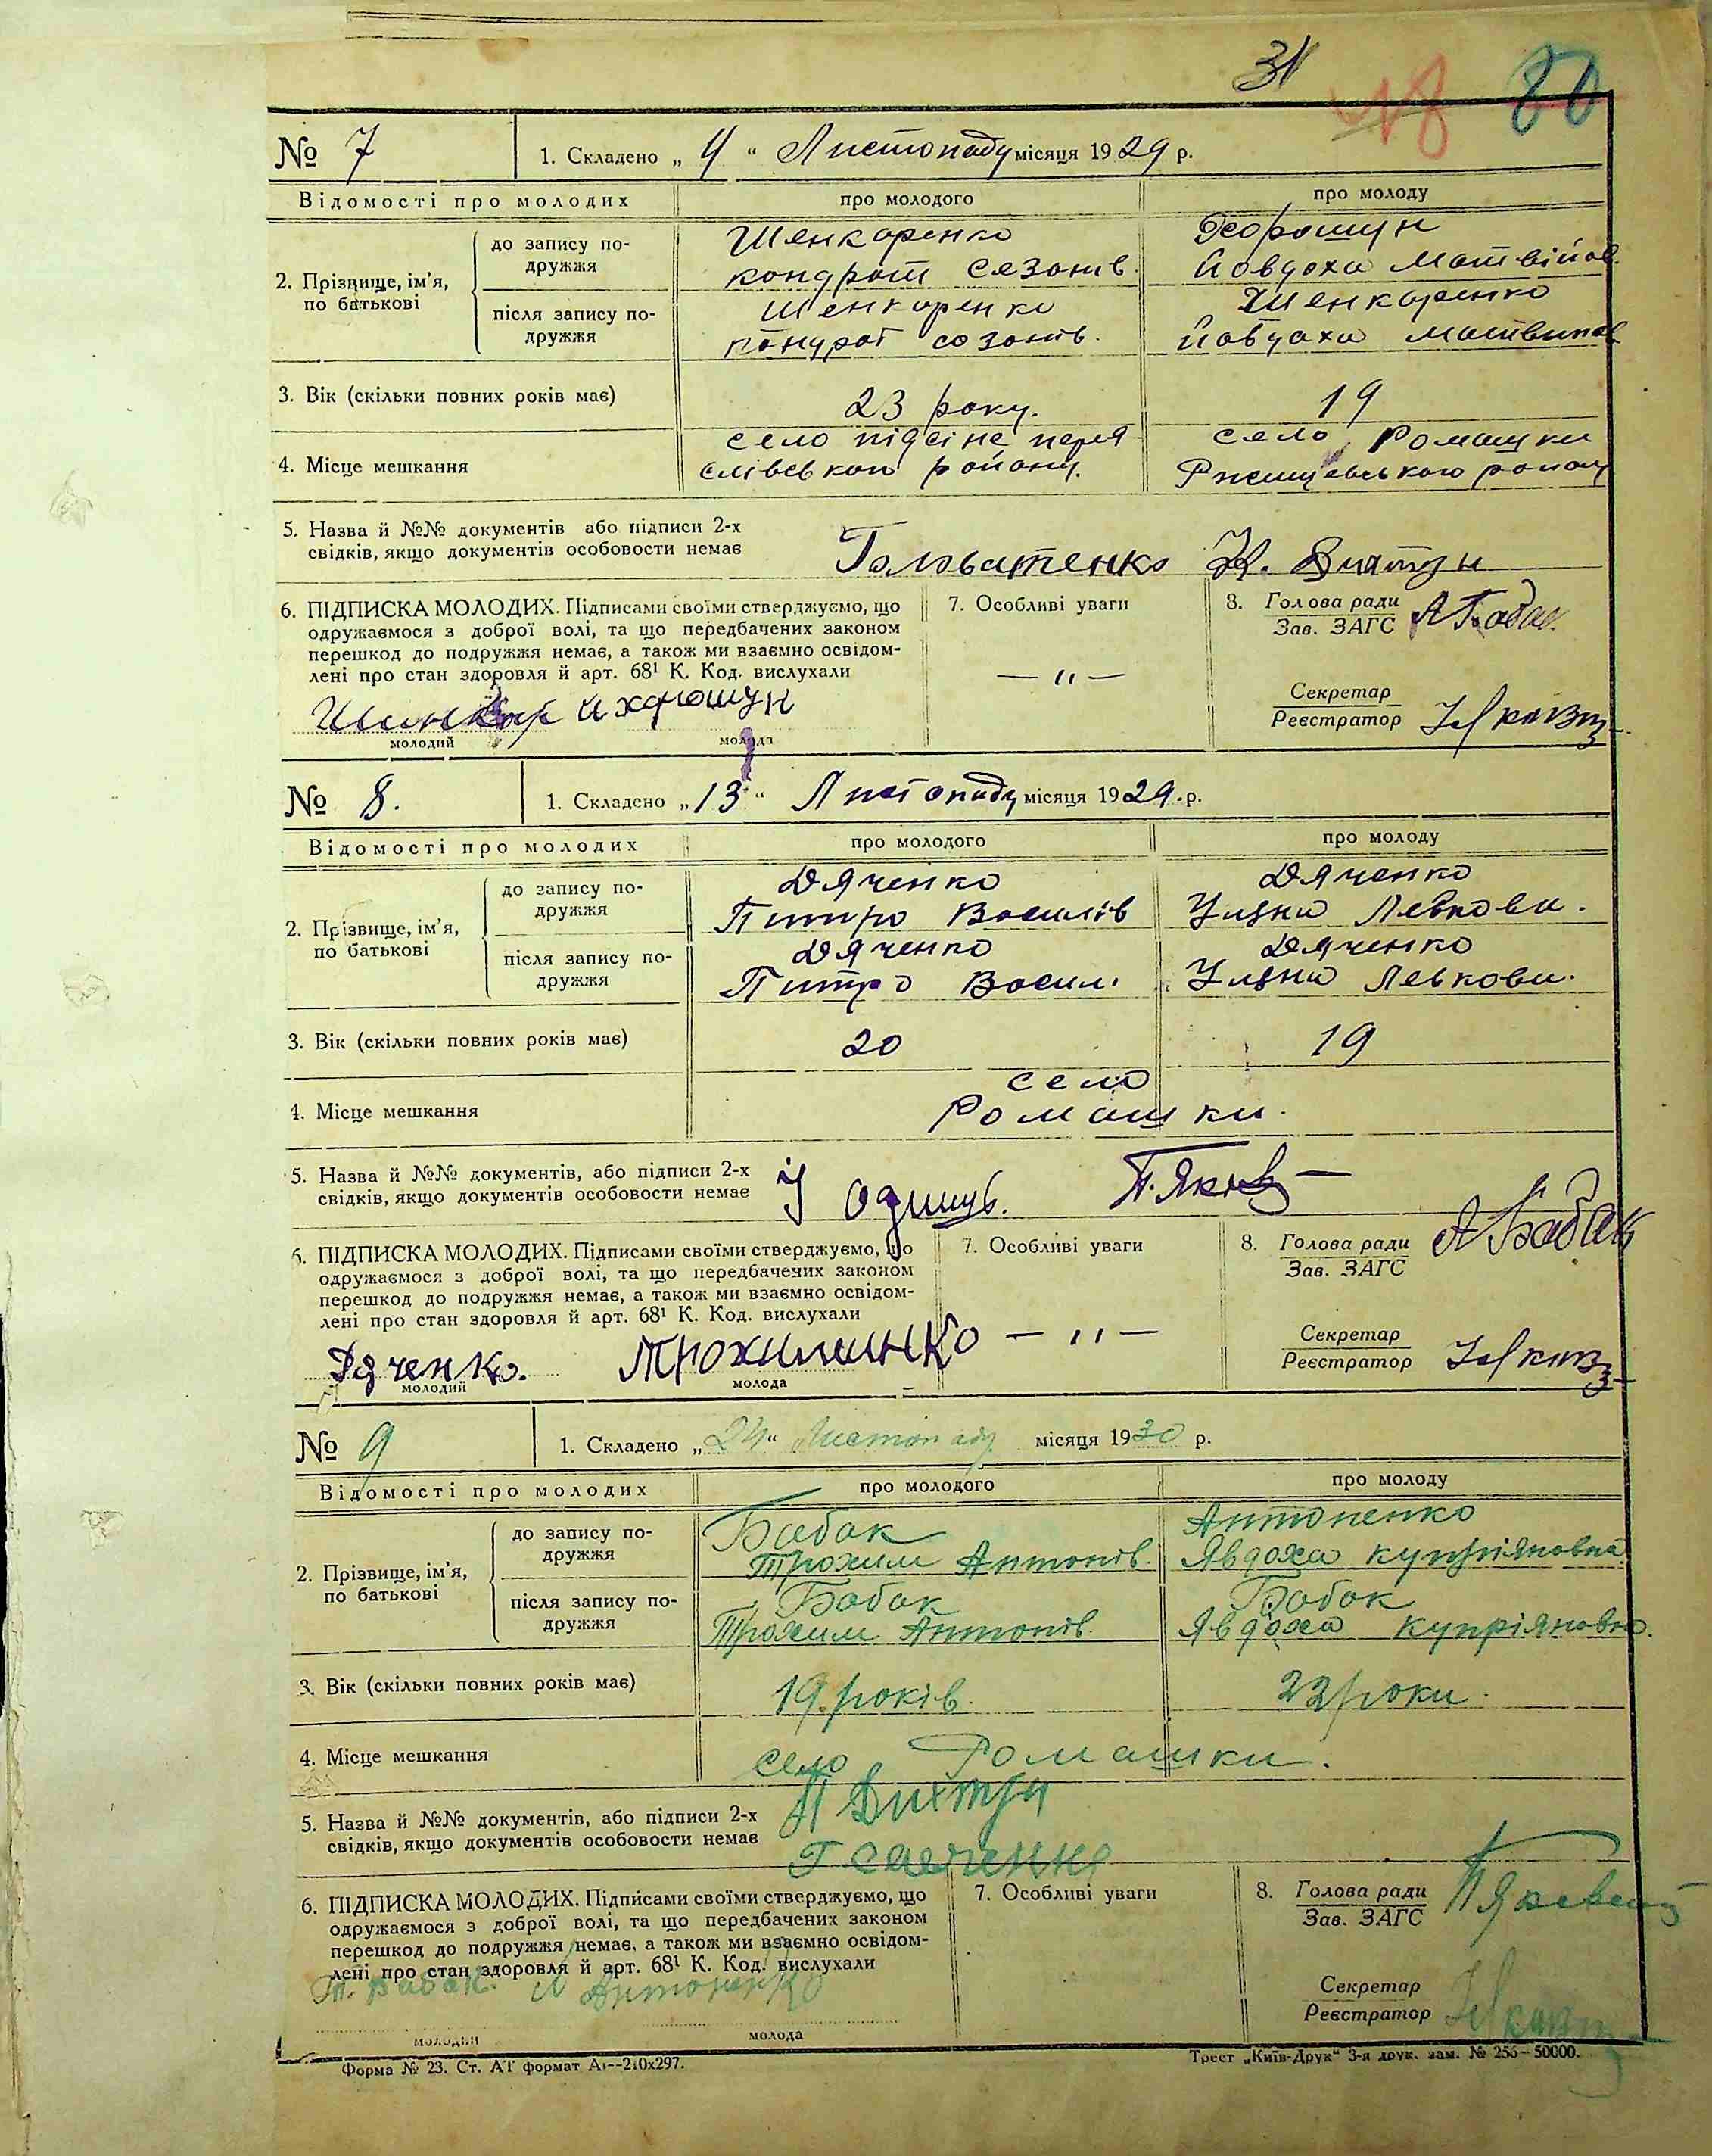 31 18 80
№ 7 1. Складено „ 4 “ Листопаду місяця 1929 р.
Відомості про молодих про молодого про молоду
2. Прізвище, ім'я, по батькові
до запису подружжя
Шенкаренко
кондрат Сезонів.
Хорошун
Йовдоха Матвійов.
після запису подружжя
Шенкаренко
кондрат созонів.
Шенкаренко
Йовдоха
3. Вік (скільки повних років має) 23 року. 19
4. Місце мешкання
село підсіне перея
славського району.
село Ромашки
Ржищевського району
5. Назва й №№ документів або підписи 2-х
свідків, якщо документів особовости немає
Головатенко
6. ПІДПИСКА МОЛОДИХ. Підписами своїми стверджуємо, що
одружаємося з доброї волі, та що передбачених законом
перешкод до подружжя немає, а також ми взаємно освідом-
лені про стан здоровля й арт. 68¹ К. Код. вислухали
7. Особливі уваги
— „ —
8. Голова ради
Зав. ЗАГС
А Бабак
Секретар
Реєстратор
хорошун
молодий молода
№ 8. 1. Складено „ 13 “ Листопаду місяця 1929 р.
Відомості про молодих про молодого про молоду
2. Прізвище, ім'я, по батькові
до запису подружжя
Дяченко
Питро Василів
Дяченко
Уляна Левкови.
після запису подружжя
Дяченко
Питро Васил.
Дяченко
Уляна Левкови.
3. Вік (скільки повних років має) 20 19
4. Місце мешкання
село
Ромашки.
5. Назва й №№ документів, або підписи 2-х
свідків, якщо документів особовости немає
6. ПІДПИСКА МОЛОДИХ. Підписами своїми стверджуємо, що
одружаємося з доброї волі, та що передбачених законом
перешкод до подружжя немає, а також ми взаємно освідом-
лені про стан здоровля й арт. 68¹ К. Код. вислухали
7. Особливі уваги
— „ —
8. Голова ради
Зав. ЗАГС
А Бабак
Секретар
Реєстратор
Дяченко.
молодий молода
№ 9 1. Складено „ 24 “ Листопаду місяця 1930 р.
Відомості про молодих про молодого про молоду
2. Прізвище, ім'я, по батькові
до запису подружжя
Бабак
Трохим Антонів.
Антоненко
Явдоха купріяновна.
після запису подружжя
Бабак
Трохим Антонів.
Бабак
Явдоха купріяновна.
3. Вік (скільки повних років має) 19 років. 22 роки.
4. Місце мешкання село Ромашки.
5. Назва й №№ документів, або підписи 2-х
свідків, якщо документів особовости немає
6. ПІДПИСКА МОЛОДИХ. Підписами своїми стверджуємо, що
одружаємося з доброї волі, та що передбачених законом
перешкод до подружжя немає, а також ми взаємно освідом-
лені про стан здоровля й арт. 68¹ К. Код. вислухали
7. Особливі уваги
8. Голова ради
Зав. ЗАГС
Секретар
Реєстратор
Т. Бабак. Антоненко
молодий молода
Форма № 23. Ст. АТ формат А₄—210х297.
Трест „Київ-Друк“ 3-я друк. зам. № 256—50000.